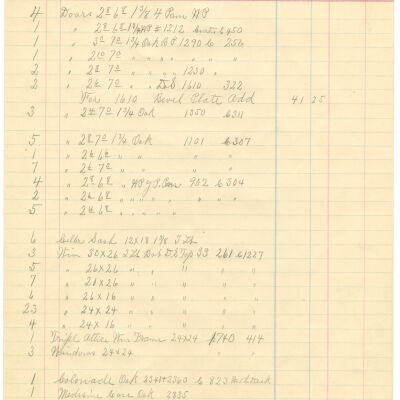 4 Doors 2 8 6 8 1 3/8 4 Pan YP
1 " 2 8 6 8 1 3/4 YP #1212 6450
1 " 3 0 7 0 1 3/4 Oak BP 1290 6 256
1 " 2 10 7 0 " " " " "
2 " 2 8 7 0 " " 1230 "
2 " 2 6 7 0 " " DS 1610 322
For 1610 Bevel Plate Add 41 25
3 " 2 4 7 0 1 3/4 Oak 1350 6311
5 " 2 8 7 0 1 3/4 Oak 1101 6307
1 " 2 6 6 6 " " " "
7 " 2 6 7 0 " " " "
4 " 2 8 6 8 " YP 5 Pan 902 6304
2 " 2 6 6 8 " " " " "
5 " 2 4 6 8 " " " "
6 Celler Sash 12x18 1 3/8 3 Lt
3 Win 30x26 2 Lt DS Top 261 61227
5 " 26x26 " " " " "
7 " 20x26 " " " "
6 " 26x16 " " " "
23 " 24x24 " " " "
4 " 24x16 " " " "
1 Tripl Attic Win Frame 24x24 1740 414
3 Windows 24x24 " "
1 Colonade Oak 6 823
1 Medesine Case Oak 2835